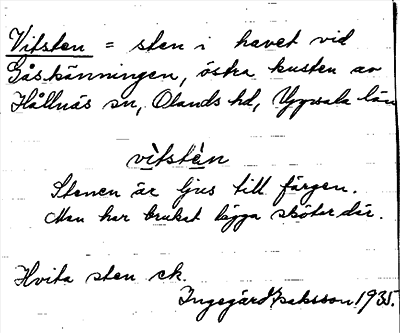 Vitsten = sten i havet vid
Gåskänningen, östra kusten av
Hållnäs sn, Olands hd, Uppsala län
vìtstè̀n
Stenen är ljus till färgen.
Man har brukat lägga skötar där.
Hvita sten ek.
Ingegärd Isaksson 1935.